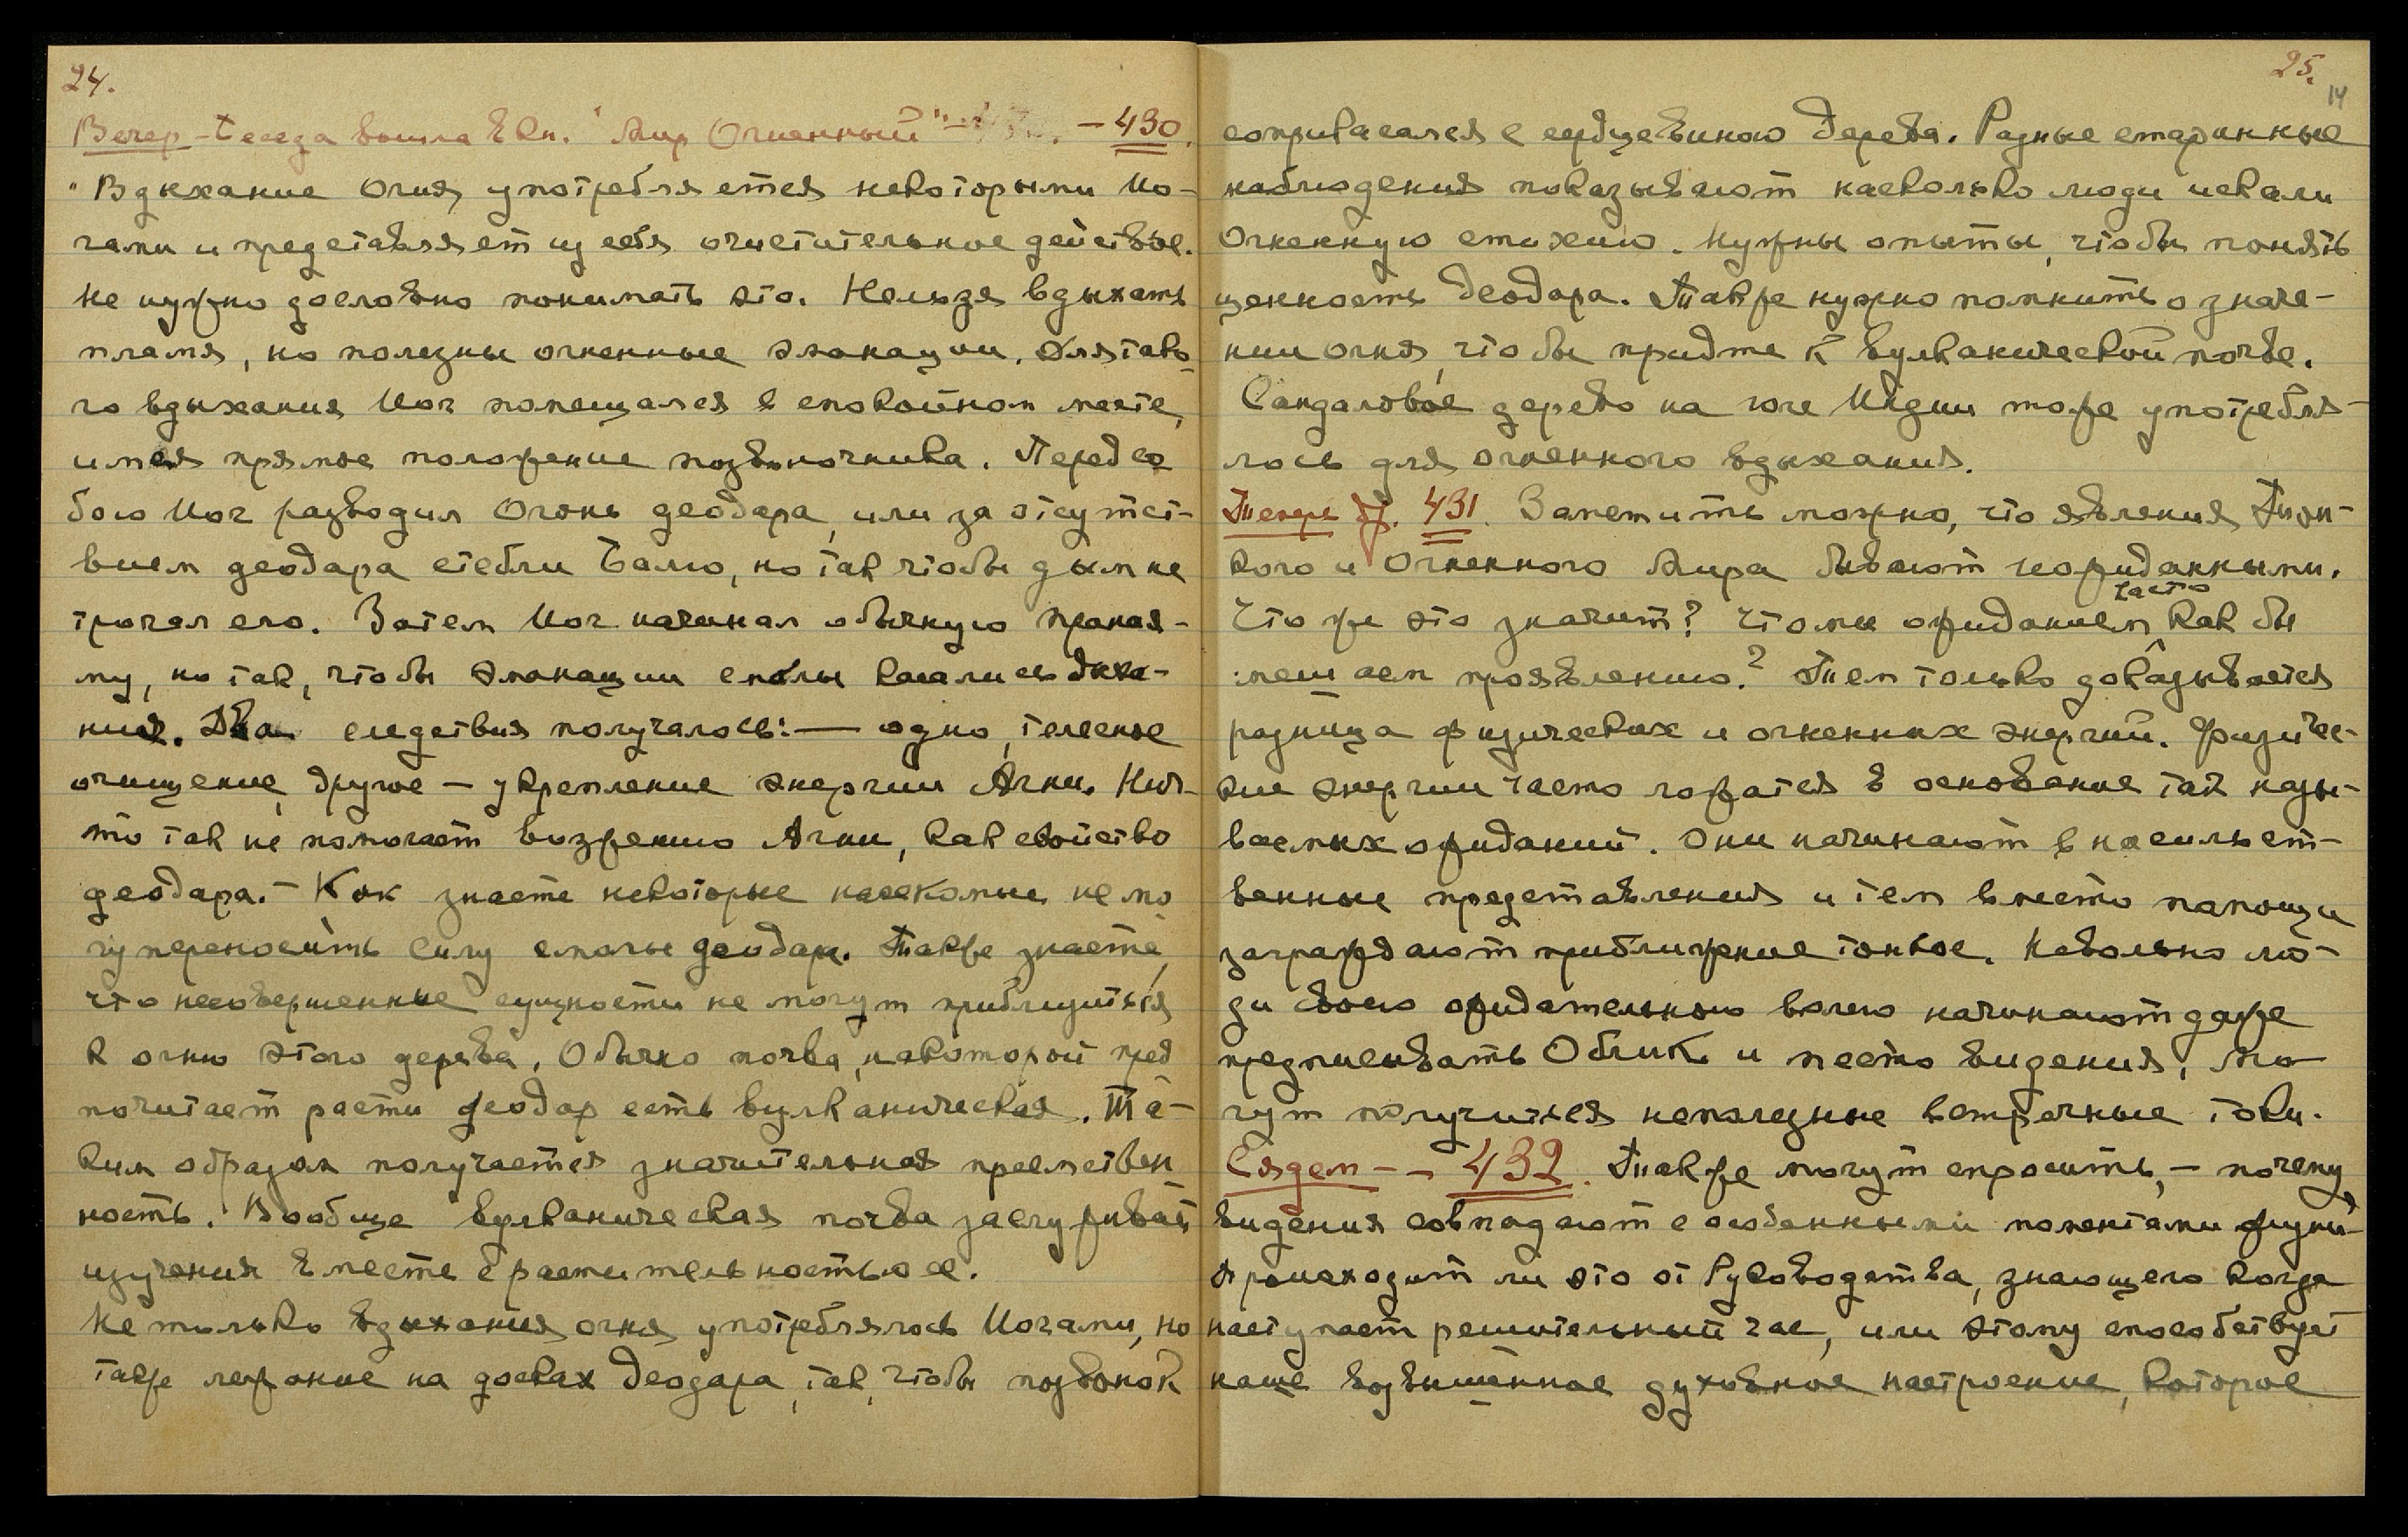 24.
Вечер - Беседа вошла в кн. "Мир Огненный" - 430.
"Вдыхание огня употребляется некоторыми Йо-
гами и представляет из себя очистительное действие.
Не нужно дословно понимать это. Нельзя вдыхать
пламя, но полезны огненные эманации. Для тако-
го вдыхания Йог помещался в спокойном месте,
имея прямое положение позвоночника. Перед со
бою Йог разводил Огонь деодара, или за отсутст-
вием деодара стебли Балю, но так чтобы дым не
трогал его. Затем Йог начинал обычную Праная-
му, но так, чтобы эманации смолы касались дыха-
ния. Два следствия получалось: — одно, телесное
очищение, другое — укрепление энергии Агни. Нич-
то так не помогает возжению Агни, как свойство
деодара. - Как знаете некоторые насекомые не мо
гут переносить силу смолы деодара. Также знаете,
что несовершенные сущности не могут приблизиться
к огню этого дерева. Обычно почва, на которой пред
почитает расти деодар есть вулканическая. Та-
ким образом получается значительная преемствен
ность. Вообще вулканическая почва заслуживает
изучения вместе с растительностью ее.
Не только вдыхания огня употреблялось Йогами, но
также лежание на досках деодара, так, чтобы позвонок
25.
14
соприкасался с сердцевиною дерева. Разные старинные
наблюдения показывают насколько люди искали
Огненную стихию. Нужны опыты, чтобы понять
ценность Деодара. Также нужно помнить о значе-
нии огня, чтобы придти к вулканической почве.
Сандаловое дерево на юге Индии тоже употребля-
лось для огненного вдыхания.
431. Заметить можно, что явления Тон-
кого и Огненного Мира бывают неожиданными.
Что же это значит? Что мы ожиданием часто как бы
мешаем проявлению? Тем только доказывается
разница физических и огненных энергий. Физичес-
кие энергии часто ложатся в основание так назы-
ваемых ожиданий. Они начинают в насильст-
венные представления и тем вместо помощи
заграждают приближение тонкое. Невольно лю-
ди своею ожидательною волею начинают даже
предписывать Облик и место видения, мо-
гут получиться неполезные встречные токи.
432. Также могут спросить, - почему
видения совпадают с особенными моментами жизни
Происходит ли это от Руководства, знающего когда
наступает решительный час, или этому способствует
наше возвышенное духовное настроение, которое